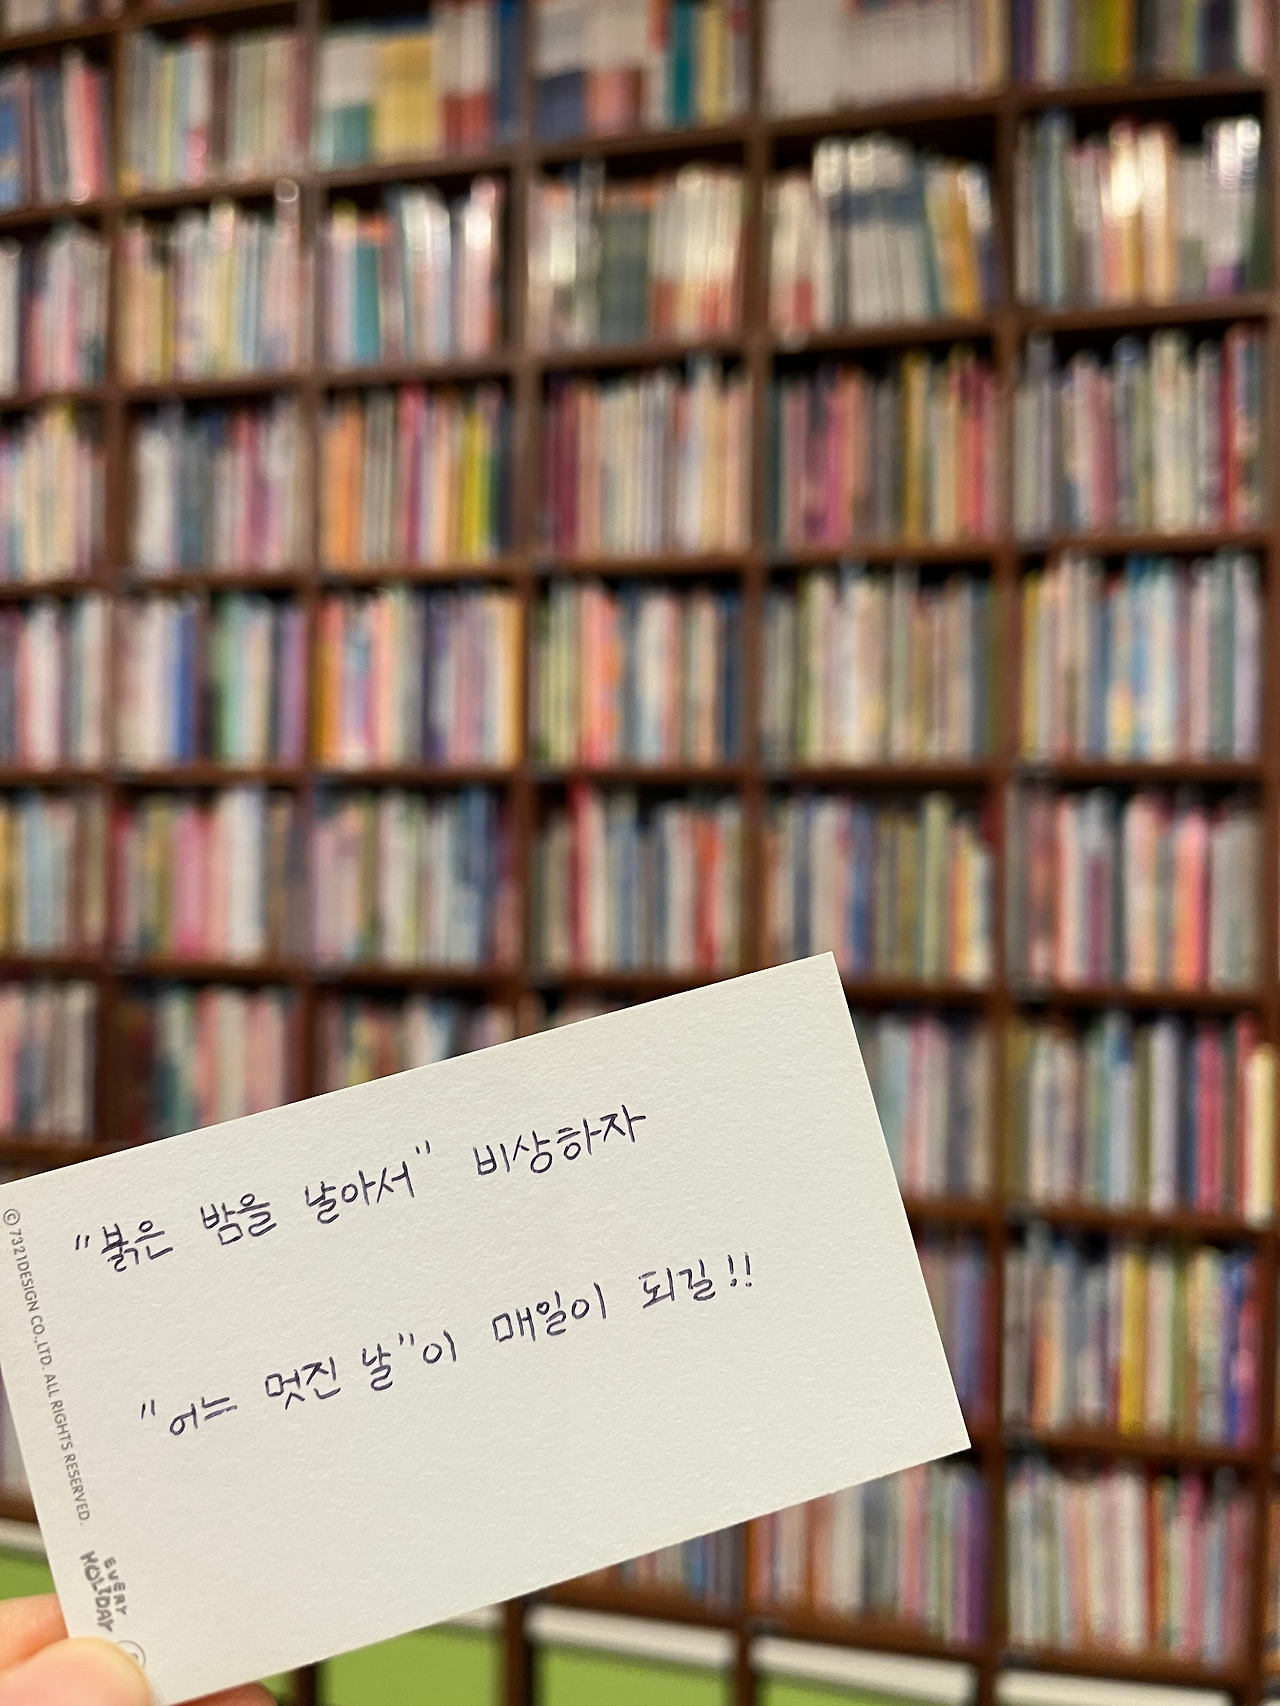 "붉은 밤을 날아서" 비상하자
"어느 멋진 날"이 매일이 되길!!
© 7321DESIGN CO.,LTD. ALL RIGHTS RESERVED.
EVERY
HOLIDAY